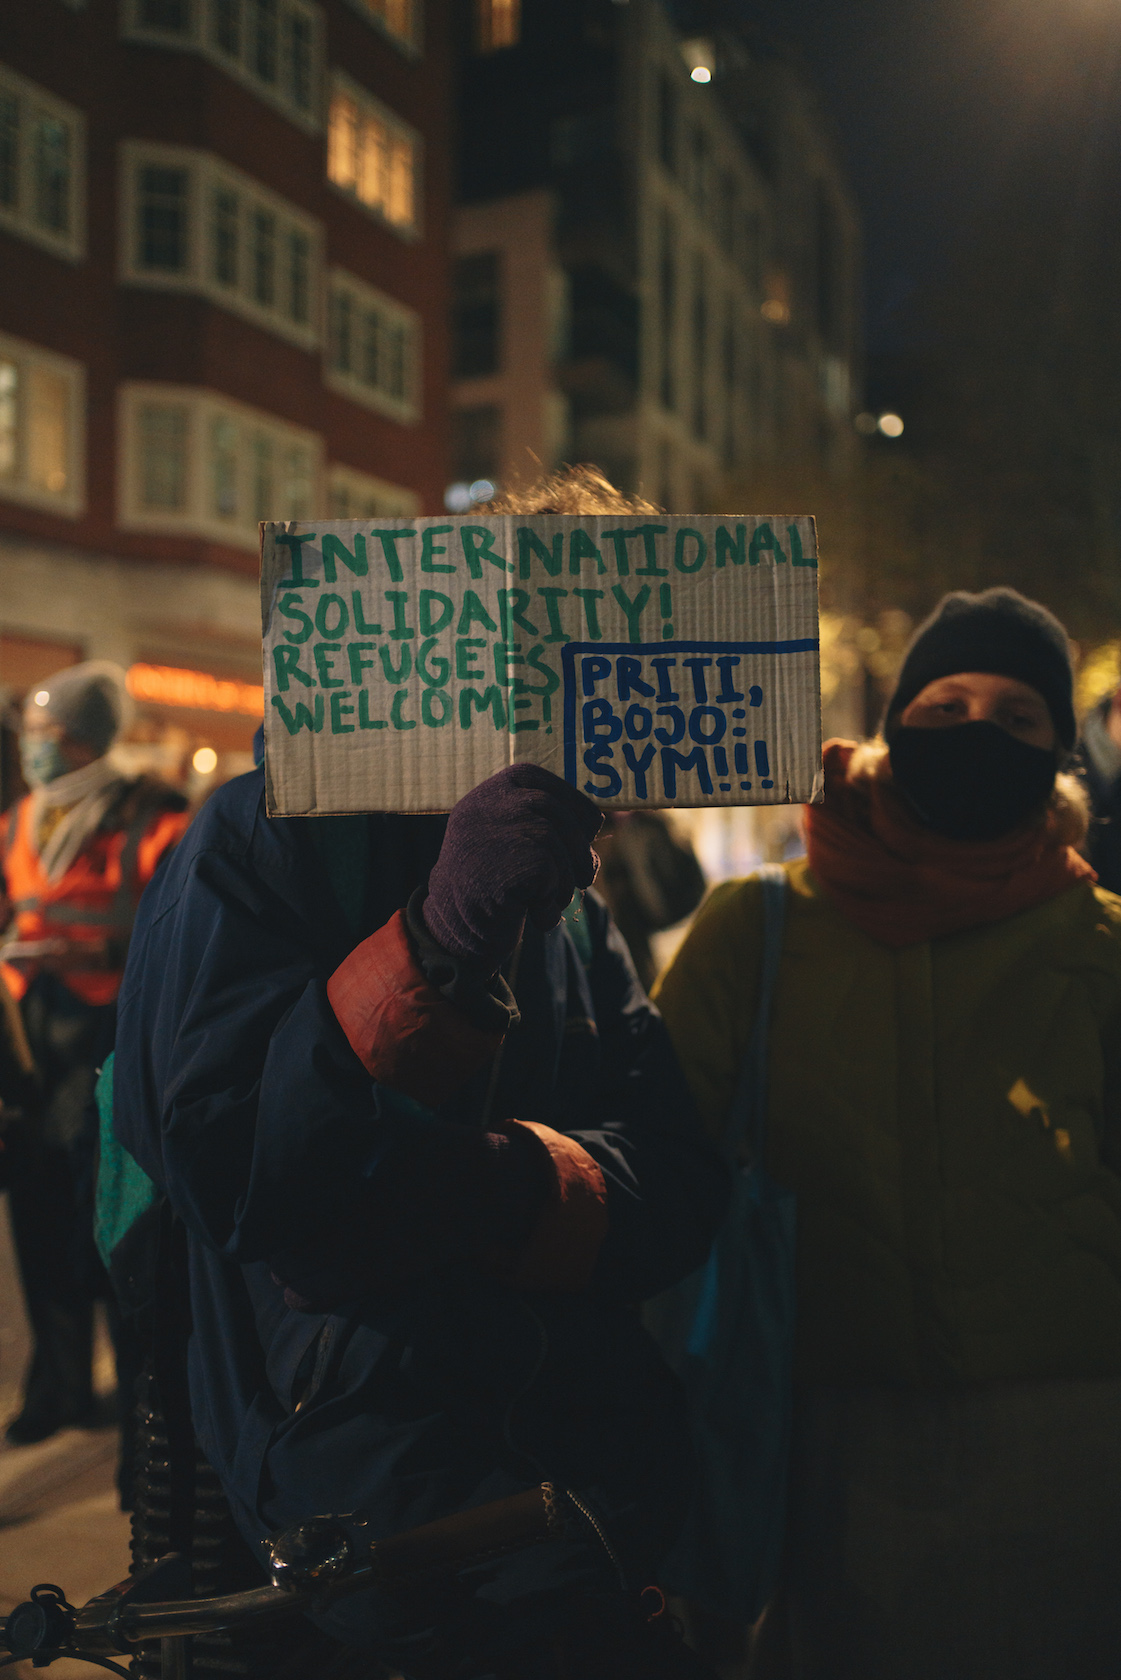 INTERNATIONAL
SOLIDARITY!
REFUGEES
WELCOME!
PRITI,
BOJO:
SYM!!!